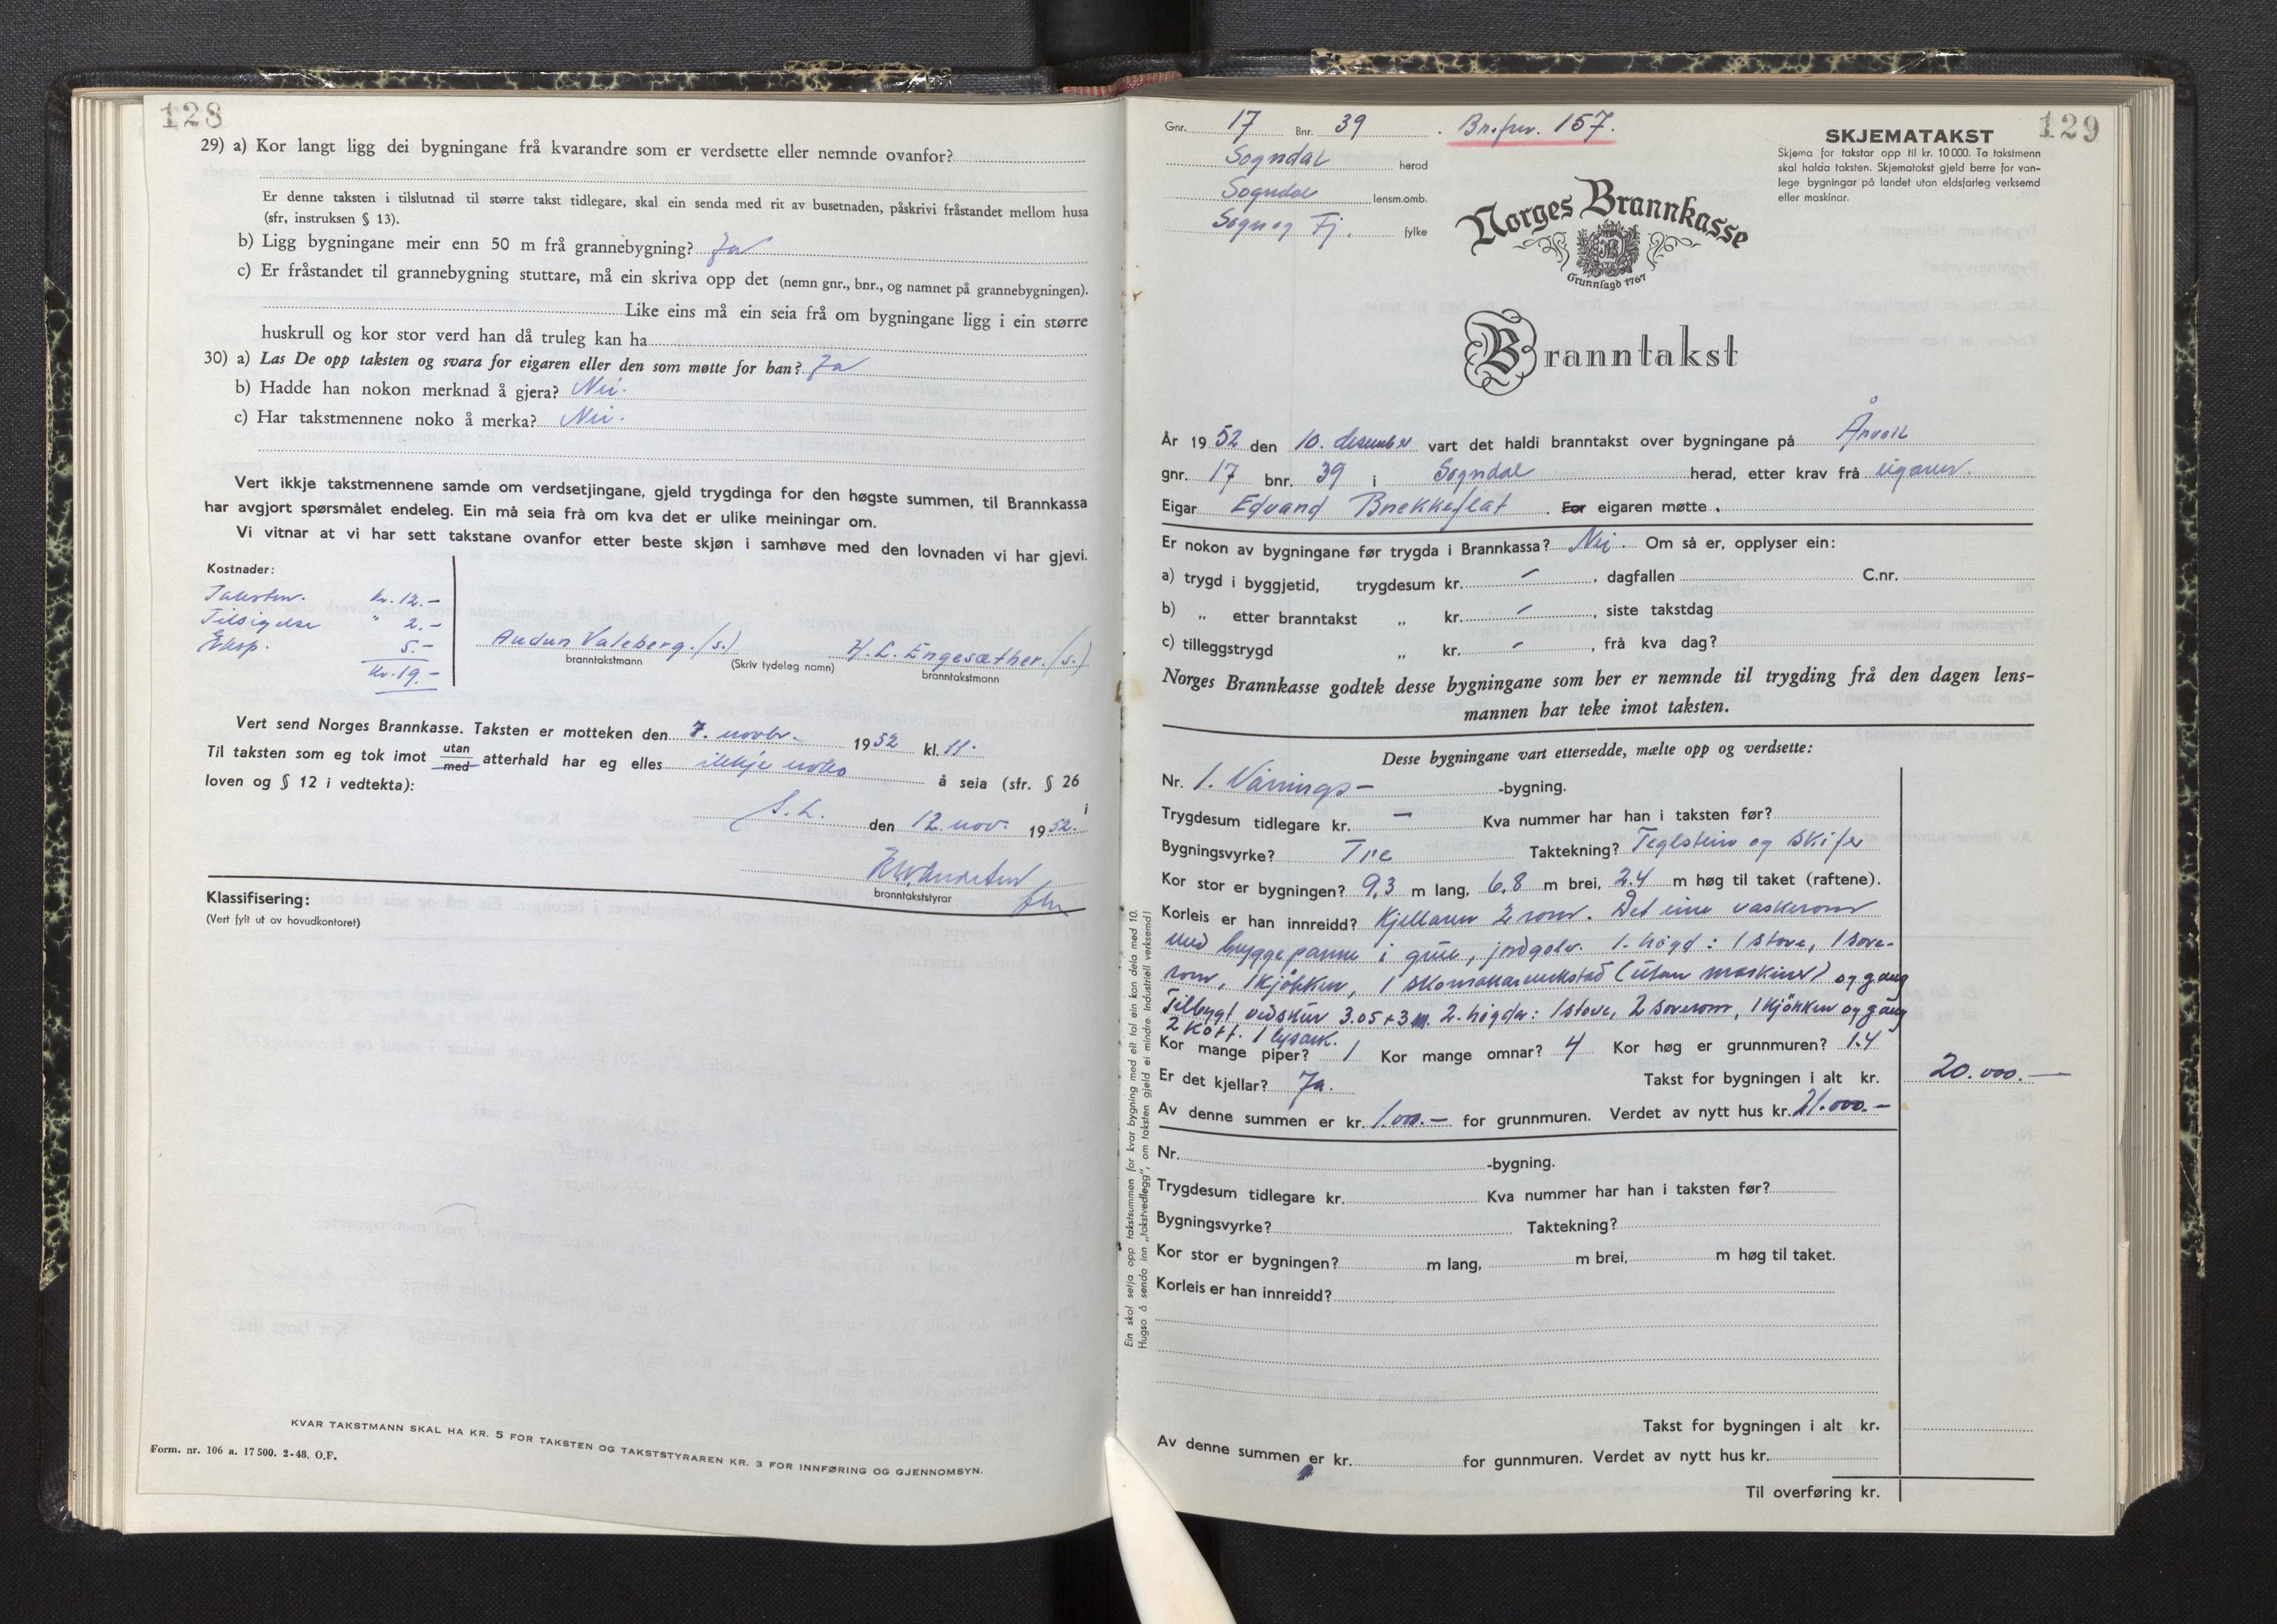 128
29) a) Kor langt ligg dei bygningane frå kvarandre som er verdsette eller nemnde ovanfor?
Er denne taksten i tilslutnad til større takst tidlegare, skal ein senda med rit av busetnaden, påskrivi fråstandet mellom husa
(sfr, instruksen § 13).
b) Ligg bygningane meir enn 50 m frå grannebygning? Ja
c) Er fråstandet til grannebygning stuttare, må ein skriva opp det (nemn gnr., bnr., og namnet på grannebygningen).
Like eins må ein seia frå om bygningane ligg i ein større
huskrull og kor stor verd han då truleg kan ha
30) a) Las De opp taksten og svara for eigaren eller den som møtte for han? Ja
b) Hadde han nokon merknad å gjera? Nei.
c) Har takstmennene noko å merka? Nei.
Vert ikkje takstmennene samde om verdsetjingane, gjeld trygdinga for den høgste summen, til Brannkassa
har avgjort spørsmålet endeleg. Ein må seia frå om kva det er ulike meiningar om.
Vi vitnar at vi har sett takstane ovanfor etter beste skjøn i samhøve med den lovnaden vi har gjevi.
Kostnader:
Takstm. kr. 12.-
Tilsigelse " 2.-
Eksp. 5.-
kr. 19.-
Audun Valeberg. /(s.) H. L. Engesæther. /(s.)
branntakstmann (Skriv tydeleg namn) branntakstmann
Vert send Norges Brannkasse. Taksten er motteken den 7. novbr. 1952 kl. 11.
Til taksten som eg tok imot utan/med atterhald har eg elles ikkje noko å seia (sfr. § 26 i
loven og § 12 i vedtekta):
S. L. den 12. nov. 1952.
branntakststyrar
Klassifisering:
(Vert fylt ut av hovudkontoret)
KVAR TAKSTMANN SKAL HA KR. 5 FOR TAKSTEN OG TAKSTSTYRAREN KR. 3 FOR INNFØRING OG GJENNOMSYN.
Form. nr. 106 a. 17 500. 2-48. O.F.
129
Gnr. 17 Bnr. 39 . Br.frv. 157.
Sogndal herad
Sogndal lensm.omb.
Sogn og Fj. fylke
SKJEMATAKST
Skjema for takstar opp til kr. 10 000. To takstmenn
skal halda taksten. Skjematakst gjeld berre for van-
lege bygningar på landet utan eldsfarleg verksemd
eller maskinar.
Norges Brannkasse
Grunnlagd 1767
Branntakst
År 1952 den 10. desember vart det haldi branntakst over bygningane på Årvoll
gnr. 17 bnr. 39 i Sogndal herad, etter krav frå eigaren.
Eigar Edvard Brekkeflat . For eigaren møtte .
Er nokon av bygningane før trygda i Brannkassa? Nei. Om så er, opplyser ein:
a) trygd i byggjetid, trygdesum kr. - , dagfallen C.nr.
b) „ etter branntakst „ kr. - , siste takstdag
c) tilleggstrygd „ kr. - , frå kva dag?
Norges Brannkasse godtek desse bygningane som her er nemnde til trygding frå den dagen lens-
mannen har teke imot taksten.
Desse bygningane vart ettersedde, mælte opp og verdsette:
Nr. 1. Vånings- -bygning.
Trygdesum tidlegare kr. - Kva nummer har han i taksten før?
Bygningsvyrke? Tre Taktekning? Teglstein og skifer
Kor stor er bygningen? 9,3 m lang, 6,8 m brei, 2.4 m høg til taket (raftene).
Korleis er han innreidd? Kjellaren 2 rom. Det eine vaskerom
med bryggepanne i grue, jordgolv. 1. høgd: 1 stove, 1 sove-
rom, 1 kjøkken, 1 skomakarverkstad (utan maskiner) og gang
Tilbygt vedskur 3.05+3 m. 2. høgda: 1 stove, 2 soverom, 1 kjøkken og gang
2 kott. 1 lysark.
Kor mange piper? 1 Kor mange omnar? 4 Kor høg er grunnmuren? 1.4
Er det kjellar? Ja. Takst for bygningen i alt kr. 20.000.-
Av denne summen er kr. 1.000.- for grunnmuren. Verdet av nytt hus kr. 21.000.-
Nr. -bygning.
Trygdesum tidlegare kr. Kva nummer har han i taksten før?
Bygningsvyrke? Taktekning?
Kor stor er bygningen? m lang, m brei, m høg til taket.
Korleis er han innreidd?
Takst for bygningen i alt kr.
Av denne summen er kr. for gunnmuren. Verdet av nytt hus kr.
Til overføring kr.
Ein skal setja opp takstsummen for kvar bygning med eit tal ein kan dela med 10.
Hugsa å senda inn „takstvedlegg", om taksten gjeld ei mindre industriell verksemd!